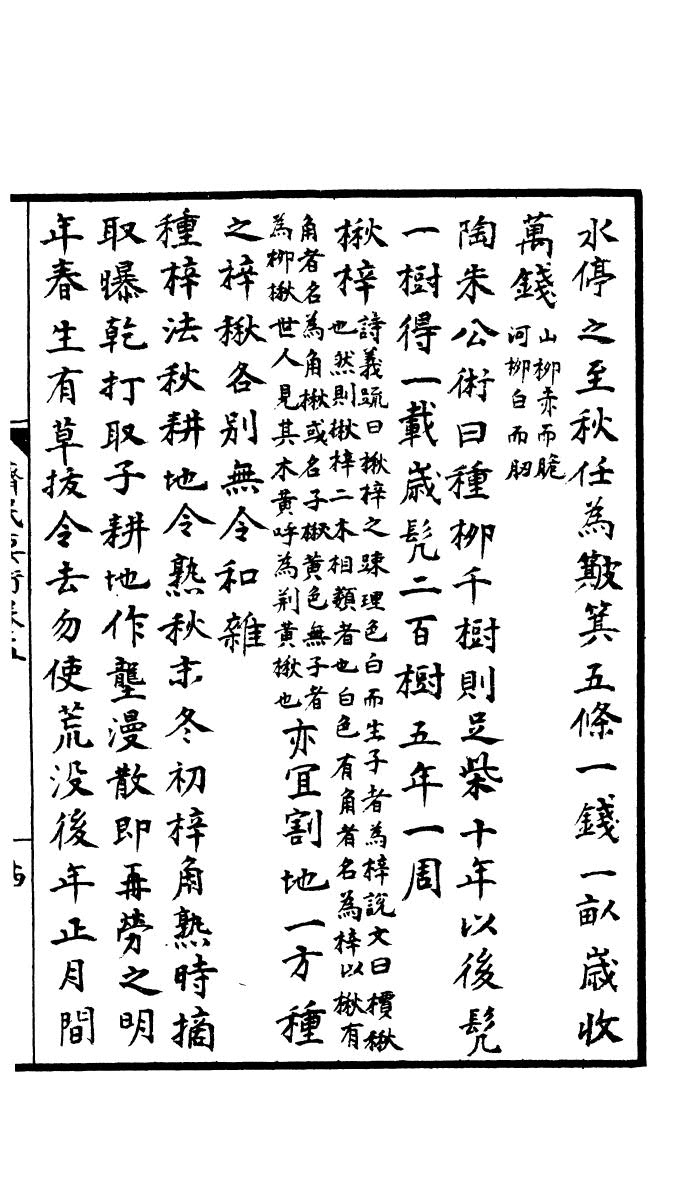 水停之至秋任為簸箕五條一錢一畝歲收
萬錢
山柳赤而脆
河柳白而肕
陶朱公術曰種柳千樹則足柴十年以後髡
一樹得一載歲髡二百樹五年一周
楸梓
詩義疏曰楸梓之疎理色白而生子者為梓說文曰檟楸
也然則楸梓二木相類者也白色有角者名為梓以楸有
角者名為角楸或名子楸黃色無子者
為柳楸世人見其木黃呼為荆黃楸也
亦宜割地一方種
之梓楸各別無令和雜
種梓法秋耕地令熟秋末冬初梓角熟時摘
取曝乾打取子耕地作壟漫散即再勞之明
年春生有草拔令去勿使荒没後年正月間
齊民要術卷五